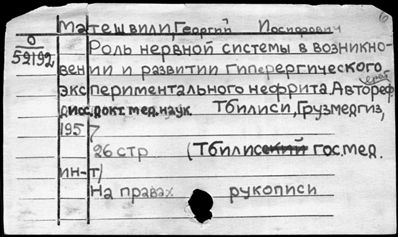 Матешвили, Георгий Иосифович
0
59192
Роль нервной системы в возникно-
вении и развитии гиперергического
экспериментального нефрита. Автореф
ерат
дисс. докт. мед. наук. Тбилиси, Грузмедгиз,
1957
26 стр (Тбилисский гос. мед.
ин-т)
На правах рукописи